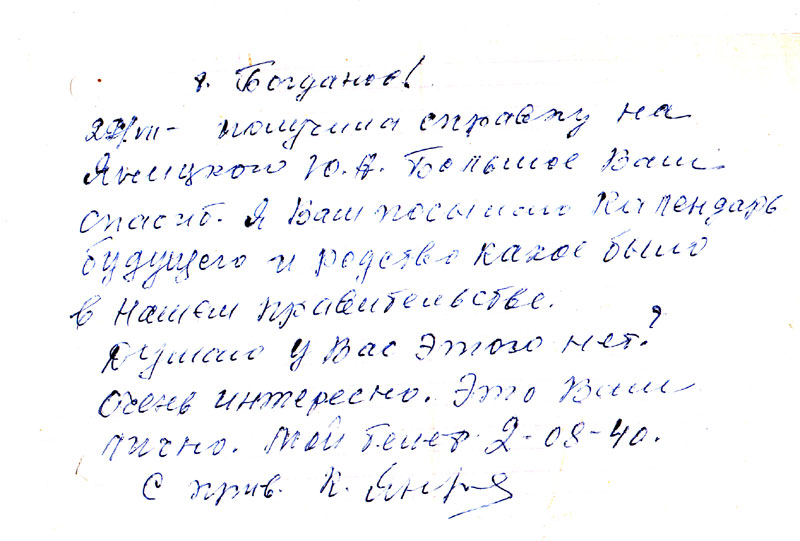 г. Богданов!
получила справку на
Яницкого Ю.А. Большое Вам
спасиб. Я Вам посылаю Календарь
будущего и родство какое было
в нашем правительстве.
Думаю у Вас этого нет?
Очень интересно. Это Вам
лично. Мой телеф. 2-08-40.
С прив. К.